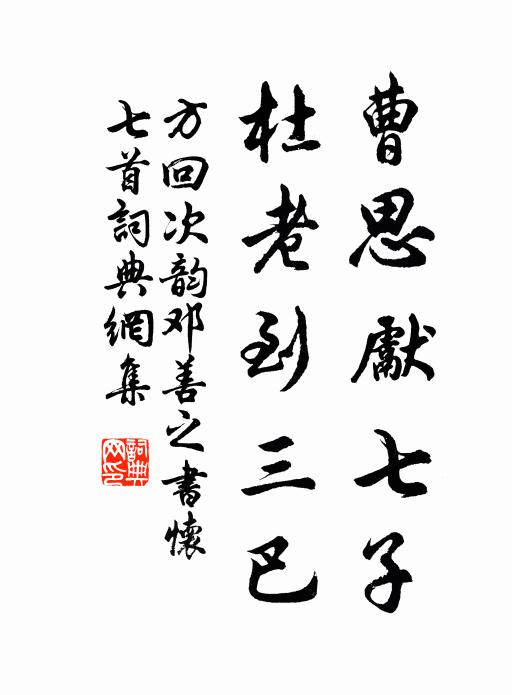 曹思獻七子
杜老到三巴
方回次韵邓善之書懷
七首詞典網集
詞典
网印